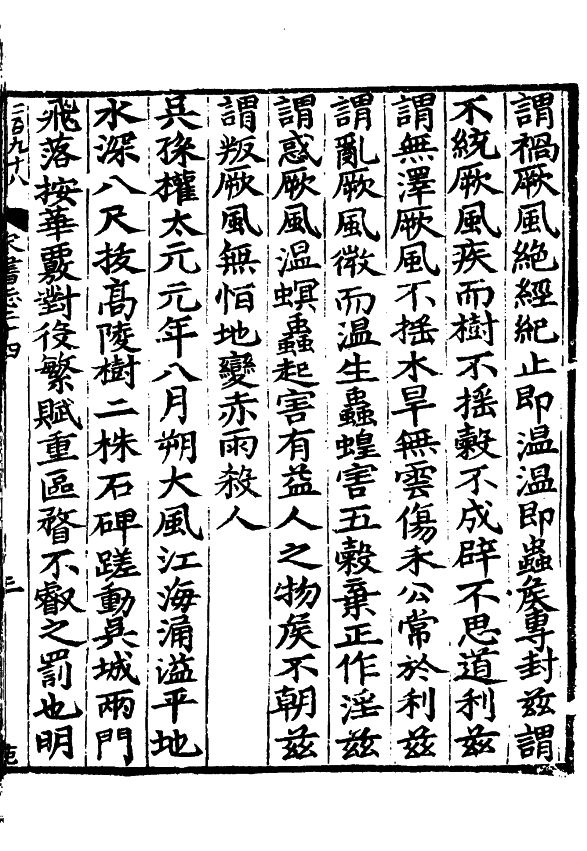 謂禍厥風絶經紀止即温温即蟲侯專封兹謂
不統厥風疾而樹不揺糓不成辟不思道利兹
謂無澤厥風不揺木旱無雲傷禾公常於利兹
謂亂厥風微而温生蟲蝗害五糓棄正作淫兹
謂惑厥風温螟蟲起害有益人之物侯不朝兹
謂叛厥風無恒地變赤雨殺人
吳孫權太元元年八月朔大風江海涌溢平地
水深八尺拔高陵樹二株石碑蹉動吳城兩門
飛落按華覈對役繁賦重區瞀不叡之罰也明
二百九十八
宋書志二十四
三